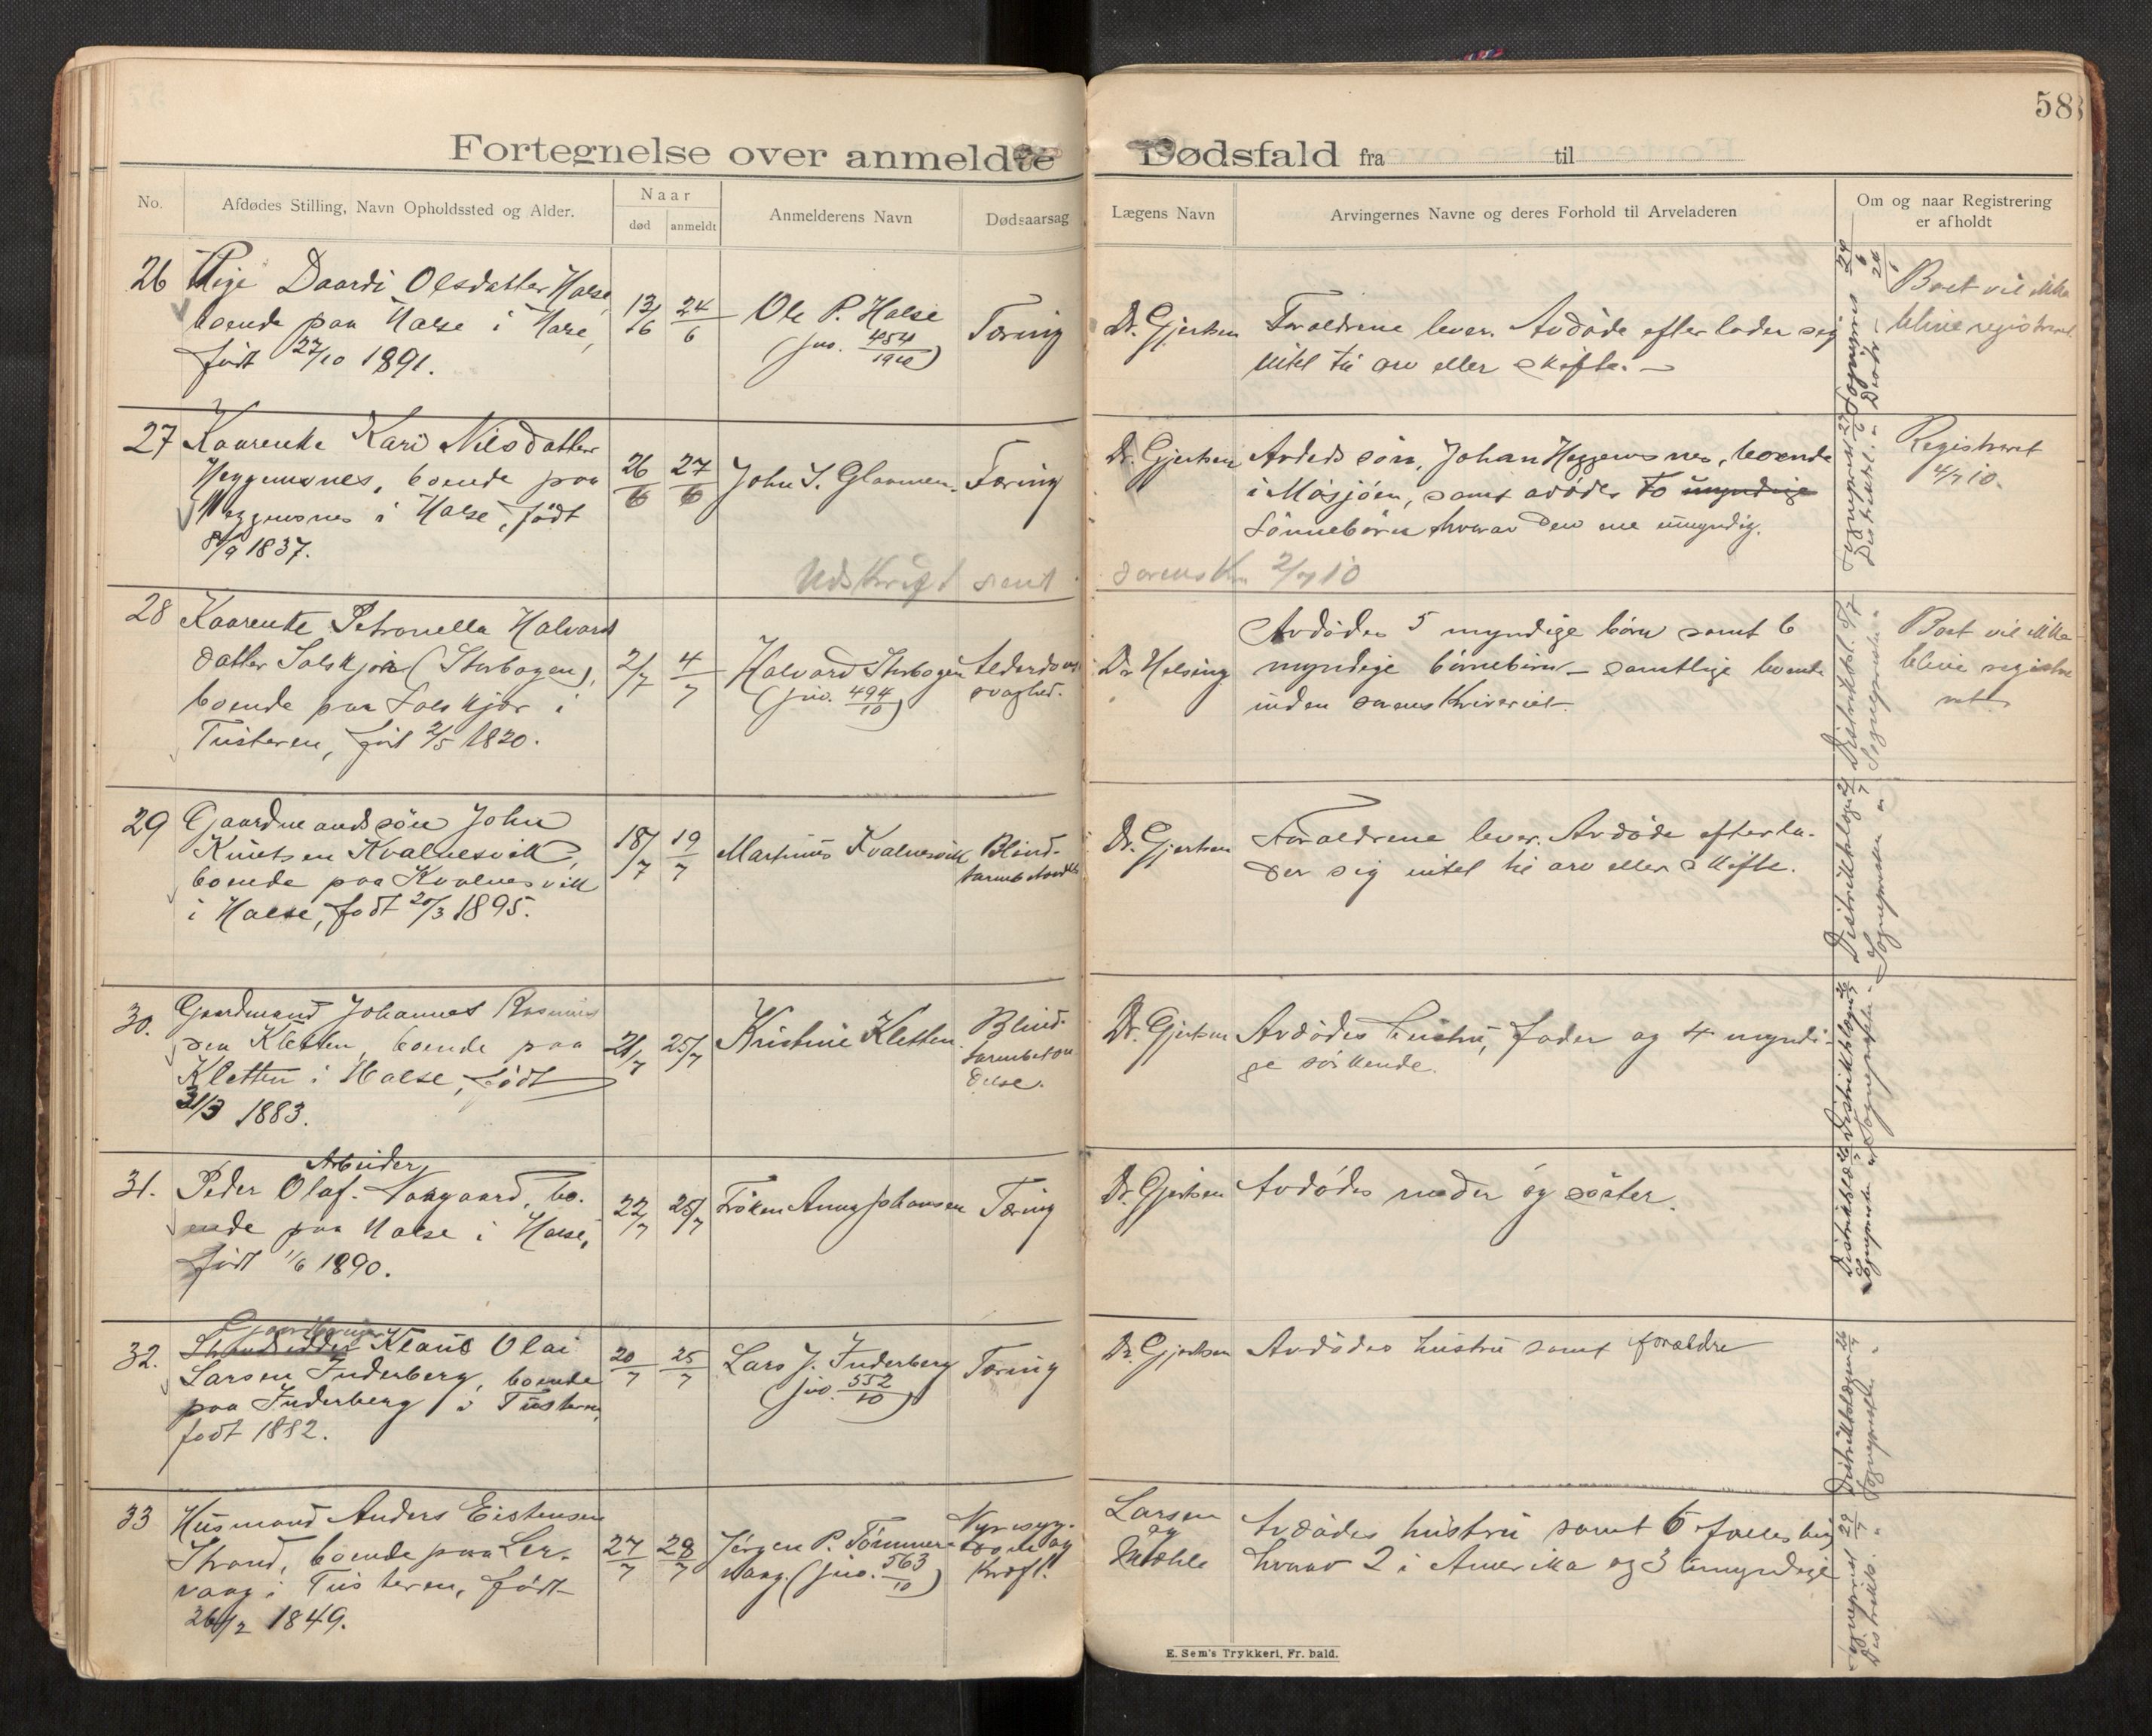 58
Fortegnelse over anmeldte Dødsfald fra til
No.
Afdødes Stilling, Navn Opholdssted og Alder.
Naar
død
anmeldt
Anmelderens Navn
Dødsaarsag
Lægens Navn
Arvingernes Navne og deres Forhold til Arveladeren
Om og naar Registrering
er afholdt
26 Pige Daardi Olsdatter Halse,
boende paa Halse i Halse,
født 27/10 1891.
13/6
24/6
Ole P. Halse
(jno. 454/1910)
Tæring
Dr. Gjertsen
Forældrene lever. Avdøde efterlader sig
intet til arv eller skifte. —
Sogneprest 24/6
Boet vil ikke
blive registreret.
27 Kaarenke Kari Nilsdatter
Heggemsnes, boende paa
Heggemsnes i Halse, født
8/9 1837.
26/6
27/6
John S. Glaamen.
Tæring
Dr. Gjertsen
Avdødes søn, Johan Heggemsnes, boende
i Mosjøen, samt avdødes to umyndige
sønnebørn hvorav den ene umyndig.
Registreret
4/7 10.
Udskrift sent
sorenskr. 2/7 10
28 Kaarenke Petronella Halvors
datter Solskjør (Storbogen),
boende paa Solskjør i
Tusteren, født 2/5 1820.
2/7
4/7
Halvard Storbogen
(jno. 494/10)
Alderdoms
svaghed.
Dr. Helsing
Avdødes 5 myndige børn samt 6
myndige børnebørn — samtlige boende
inden sorenskriveriet.
Boet vil ikke
blive registre
ret
29 Gaardmandssøn John
Knutsen Kvalnesvik,
boende paa Kvalnesvik
i Halse, født 20/3 1895.
18/7
19/7
Martinus Kvalnesvik
Blind-
Dr. Gjertsen
Forældrene lever. Avdøde efterla-
der sig intet til arv eller skifte.
30. Gaardmand Johannes Rasmus
sen Kletten, boende paa
Kletten i Halse, født
31/3 1883.
21/7
25/7
Kristine Kletten
Blind-
tarmbetæn
delse.
Dr. Gjertsen
Avdødes hustru, fader og 4 myndi-
ge søskende.
Arbeider
31. Peder Olaf. Naagaard, bo-
ende paa Halse i Halse,
født 11/6 1890.
22/7
25/7
Frøken Anna Johansen
Tæring
Dr. Gjertsen
Avdødes moder og søster.
Gaardbruger
32. Strandsidder Klaus Olai
Larsen Inderberg, boende
paa Inderberg i Tusteren,
født 1882.
20/7
25/7
Lars J. Inderberg
(jno. 552/10)
Tæring
Dr. Gjertsen
Avdødes hustru samt forældre
33 Husmand Anders Eistensen
Strand, boende paa Ler-
vaag i Tusteren, født
26/2 1849.
27/7
28/7
Jørgen P. Tømmer-
vaag. (jno. 563/10)
Nyresyg-
dom og
kræft.
Larsen
og
Mæhle
Avdødes hustru samt 6 fælles børn
hvorav 2 i Amerika og 3 umyndige
E. Sem's Trykkeri, Fr. hald.